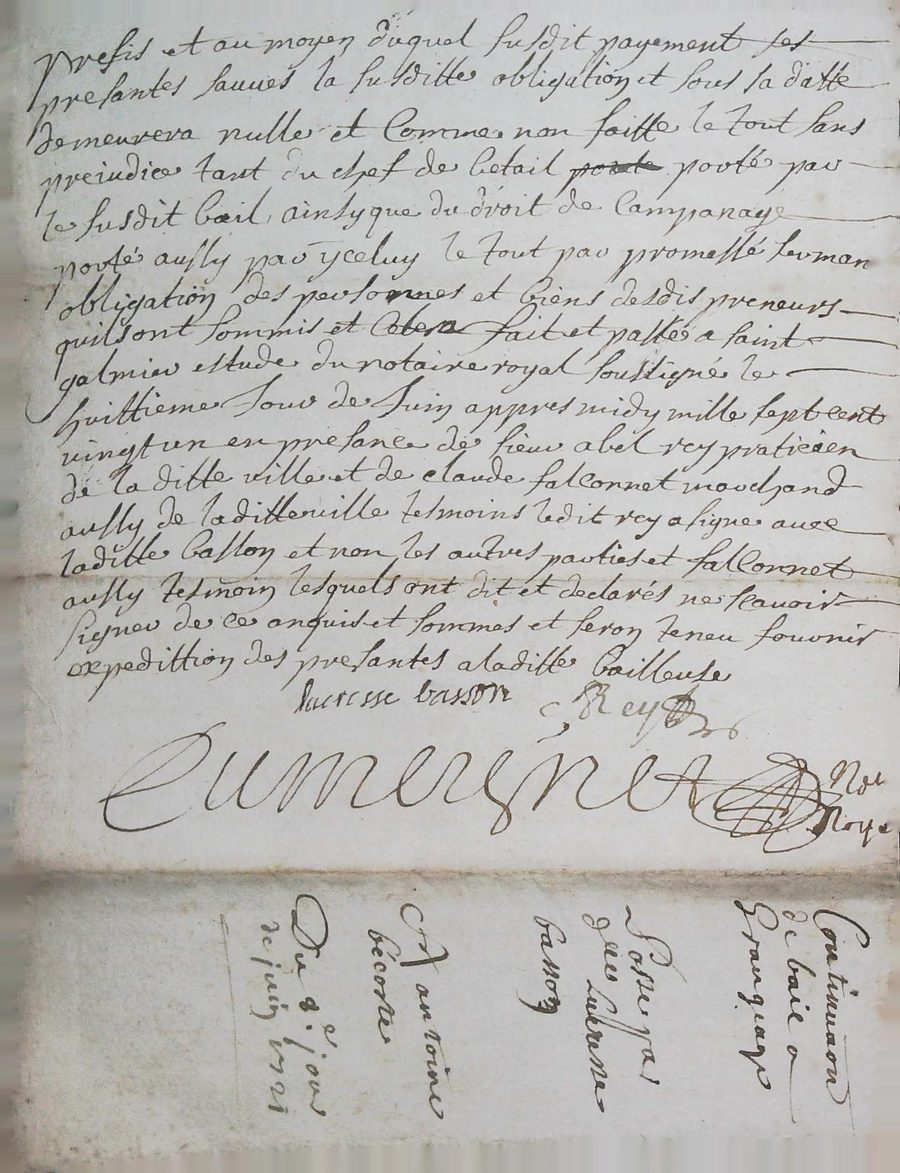 presis et au moyen duquel susdit payement ses
presantes sauues la susditte obligation et sous sa datte
demeurera nulle et Comme non faitte le tout sans
prejudice tant du chef de betail porté par
le susdit bail ainsy que du droit de Campanage
porté aussy par yceluy le tout par promesse serman
obligation des personnes et biens desdis preneurs
quils ont sommis et fait et passé a saint
galmier estude du notaire royal soussigné le
huittieme Jour de Juin appres midy mille sept cent
vingt un en presance de sieur abel rey praticien
de la ditte ville et de claude falconnet marchand
aussy de laditte ville tesmoins ledit rey a signe auec
laditte basson et non les autres parties et falconnet
aussy tesmoin lesquels ont dit et declarés ne scauoir
signer de ce anquis et sommes et seron teneu fournir
expedittion des presantes a laditte bailleuse
lucresse basson Rey
Dumeignet Not
Roya
Continuaon
de bail a
Grangeage
Passe par
basson
A antoine
bécoste
Du 8e jour
de juin 1721